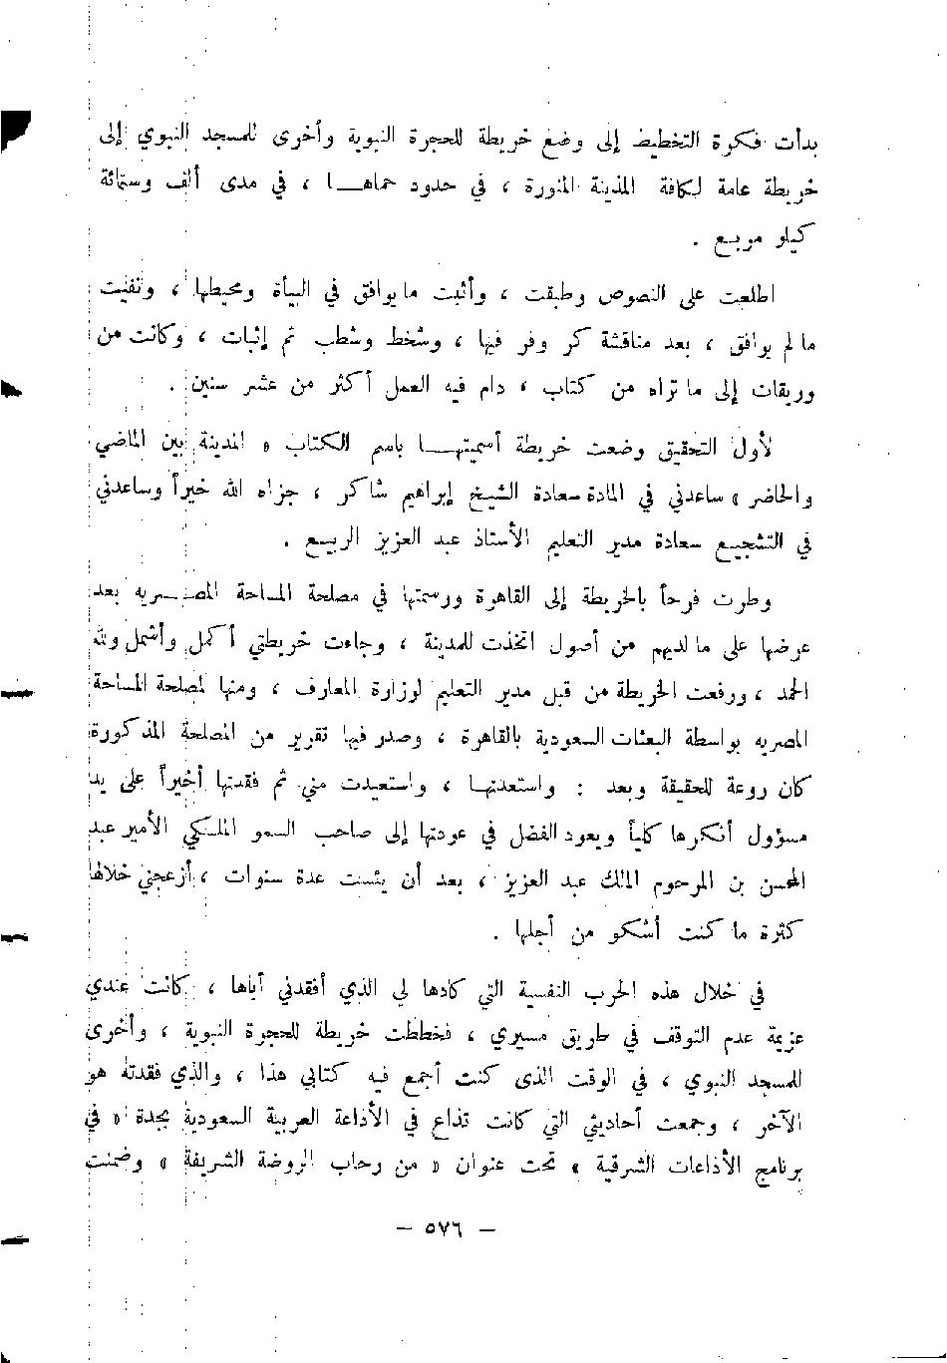 بدأت فكرة التخطيط إلى وضع خريطة للحجرة النبوية وأخرى للمسجد النبوي إلى
خريطة عامة لكافة المدينة المنورة ، في حدود حماهـــا ، في مدى ألف وستمائة
كيلو مربع .
اطلعت على النصوص وطبقت ، وأثبت ما يوافق في البيأة ومحيطها ، ونفيت
ما لم يوافق ، بعد مناقشة كر وفر فيها ، وشخط وشطب ثم إثبات ، وكانت من
وريقات إلى ما تراه من كتاب ، دام فيه العمل أكثر من عشر سنين .
لأول التحقيق وضعت خريطة أسميتهـــا باسم الكتاب « المدينة بين الماضي
والحاضر » ساعدني في المادة سعادة الشيخ إبراهيم شاكر ، جزاه الله خيراً وساعدني
في التشجيع سعادة مدير التعليم الأستاذ عبد العزيز الربيع .
وطرت فرحاً بالخريطة إلى القاهرة ورسمتها في مصلحة المساحة المصـريه بعد
عرضها على ما لديهم من أصول اتخذت للمدينة ، وجاءت خريطتي أكمل وأشمل ولله
الحمد ، ورفعت الخريطة من قبل مدير التعليم لوزارة المعارف ، ومنها لمصلحة المساحة
المصريه بواسطة البعثات السعودية بالقاهرة ، وصدر فيها تقرير من المصلحة المذكورة
كان روعة للحقيقة وبعد : واستعدتهـا ، واستعيدت مني ثم فقدتها أخيراً على يد
مسؤول أنكرها كلياً ويعود الفضل في عودتها إلى صاحب السمو الملكي الأمير عبد
المحسن بن المرحوم الملك عبد العزيز ، بعد أن يئست عدة سنوات ، أزعجني خلالها
كثرة ما كنت أشكو من أجلها .
في خلال هذه الحرب النفسية التي كادها لي الذي أفقدني أياها ، كانت عندي
عزيمة عدم التوقف في طريق مسيري ، فخططت خريطة للحجرة النبوية ، وأخرى
للمسجد النبوي ، في الوقت الذى كنت أجمع فيه كتابي هذا ، والذي فقدته هو
الآخر ، وجمعت أحاديثي التي كانت تذاع في الأذاعة العربية السعودية بجدة « في
برنامج الأذاعات الشرقية » تحت عنوان « من رحاب الروضة الشريفة » وضمنت
– ٥٧٦ –